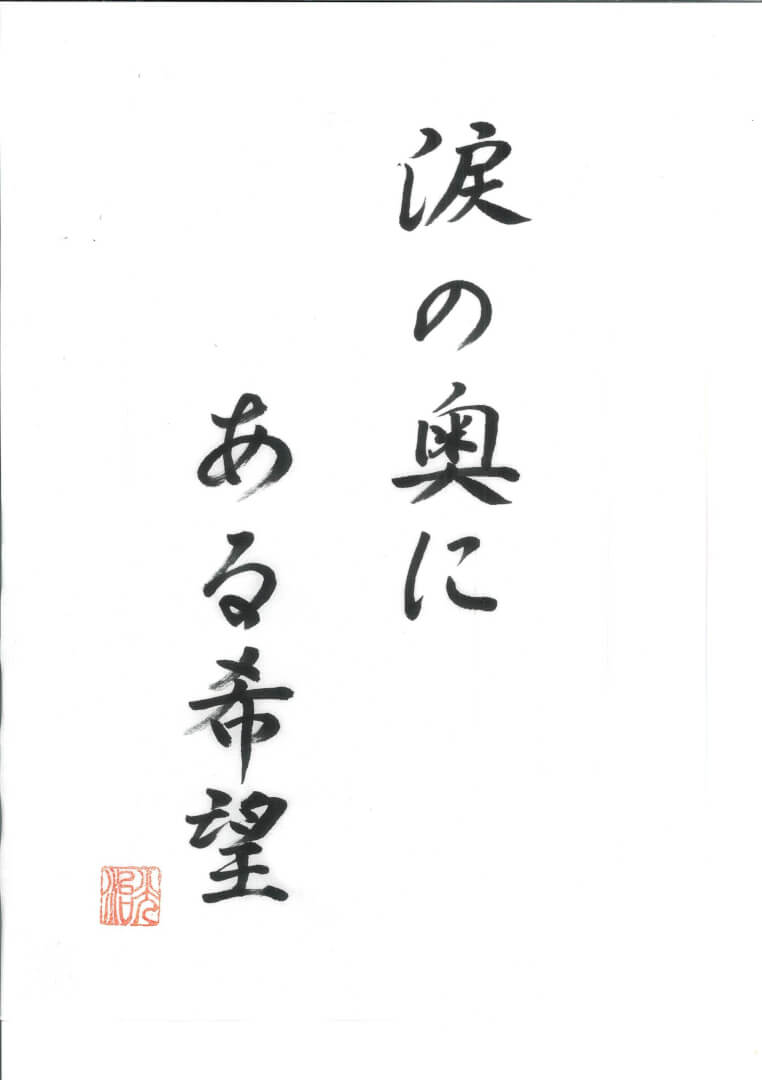 涙の奥に
ある希望